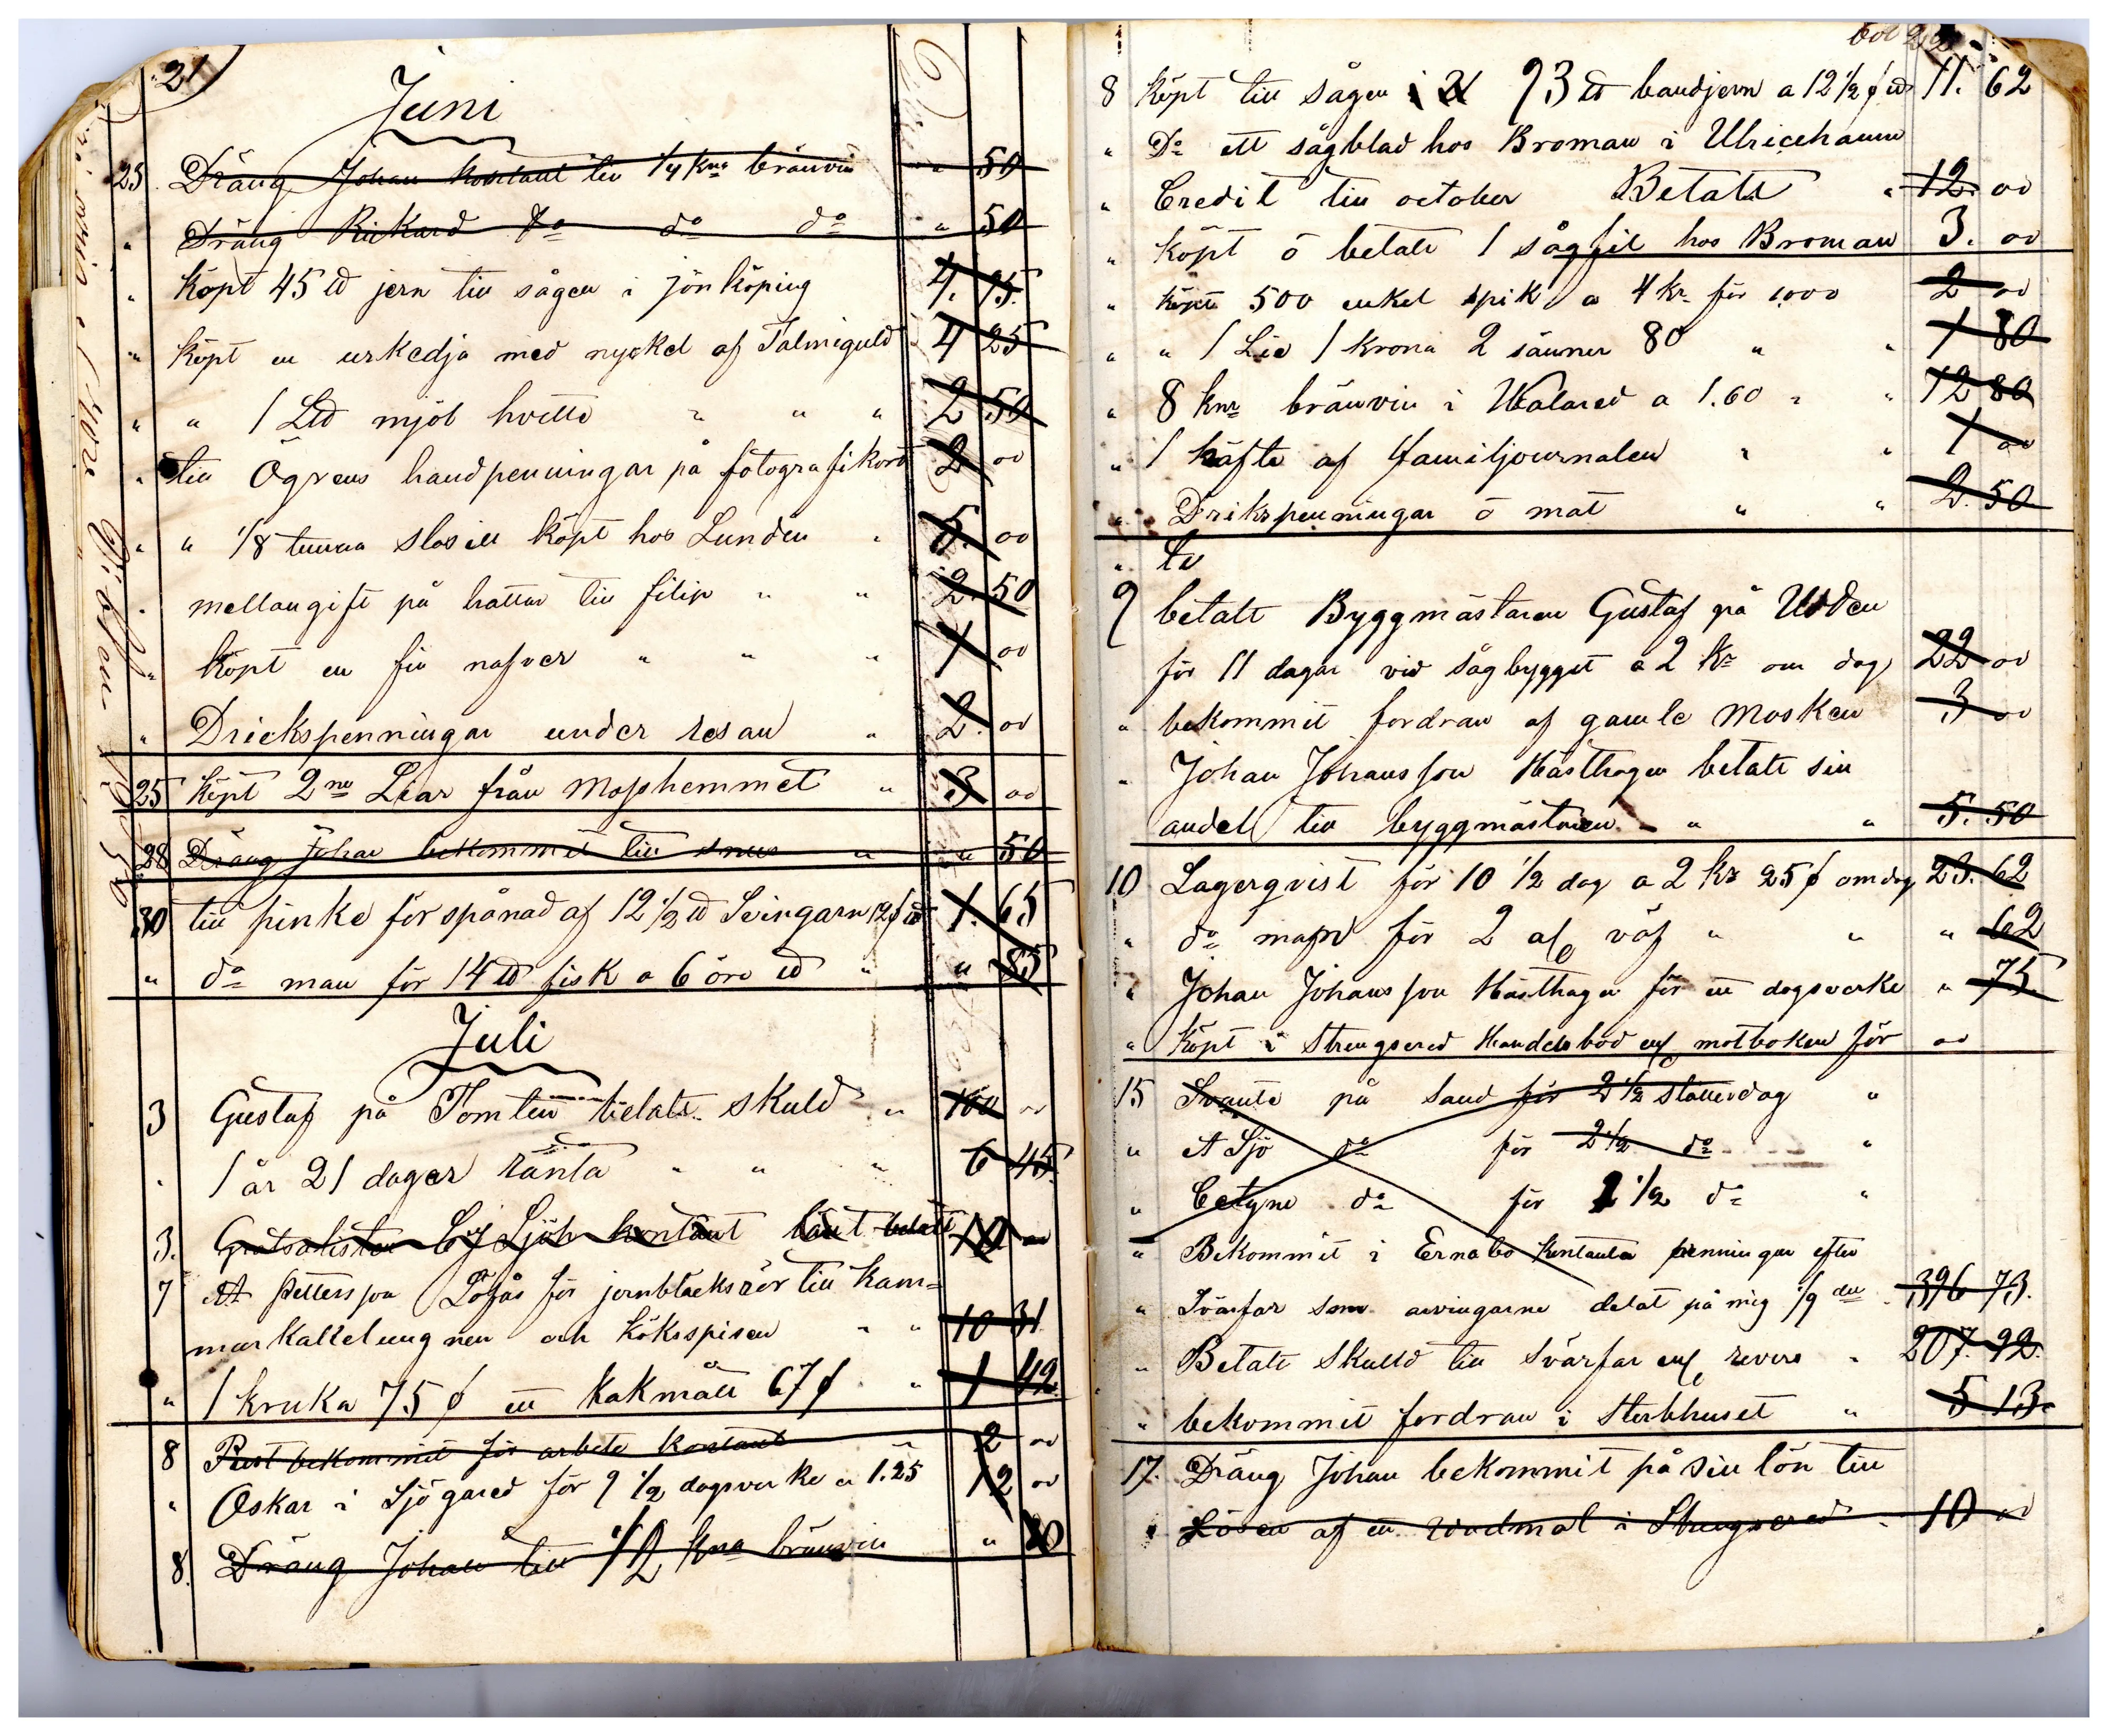 21
Juni
25. Dräng Johan kontant till 1/4 Kna bränvin " 50
" Dräng Rickard do do do " 50
" Köpt 45 ℔ jern till sågen i jönköping 4. 95.
" Köpt en urkedja med nyckel af Talmiguld 4 25
" " 1 L℔ mjöl hvitte " " " 2 50
" till Ögrens handpenningar på fotografikort 2 00
" " 1/8 tunna slosill köpt hos Lundin " 5. 00
" mellangift på hattar till filip " " 2. 50
" Köpt en fin nafver " " " 1 00
" Drickspenningar under resan " 2. 00
25 Köpt 2ne Liar från Mosshemmet " 3 00
28 Dräng Johan bekommit till snus " " 50
30 till pinke för spånad af 12 1/2 ℔ Leingarn 12 ¢ ℔ 1. 65
" do man för 14 ℔ fisk a 6 öre ℔ " " 85
Juli
3 Gustaf på Tomten betalt skuld " 100 00
" 1 år 21 dagar ränta " " " 6 45.
3. kontant lånt betalt 10 00
7 A Pettersson Löfås för jernblecksrör till kam=
markakelungnen och köksspisen " " 10 31
" 1 kruka 75 ¢ en kakmått 67 ¢ " 1 42
8 bekommit för arbete kontant 2 00
" Oskar i Sjögared för 9 1/2 dagsverke a 1.25 12 00
8. Dräng Johan till 1/2 kna bränvin "
22
8 Köpt till sågen i 93 ℔ bandjern a 12 1/2 ¢ ℔ 11. 62
" Do ett sågblad hos Broman i Ulricehamn
" Credit till october Betalt " 12. 00
" Köpt o betalt 1 sågfil hos Broman 3. 00
" Köpt 500 enkel spik a 4 kr för 1000 2 00
" " 1 Lie 1 krona 2 sänner 80 " " 1 80
" 8 knr bränvin i Walared a 1.60 " " 12 80
" 1 häfte af familjournalen " " 1 00
" Drikspenningar o mat " " 2. 50
"
9 betalt Byggmästaren Gustaf på Udden
för 11 dagar vid sågbygget a 2 Kr om dag 22 00
" bekommit fordran af gamle Mosken 3 00
" Johan Johansson Hästhagen betalt sin
andel till byggmästaren " " 5. 50
10 Lagerqvist för 10 1/2 dag a 2 kr 25 ¢ om dag 23. 62
" do för 2 al väf " " " 62
" Johan Johansson Hästhagen för ett dagsverke " 75.
" Köpt i Strengsered Handelsbod enl motboken för 00
15 Svante på Sand för 2 1/2 slåtterdag "
" A Sjö do för 2 1/2 do "
" do för 1 1/2 do "
" Bekommit i Ernabo kontanta penningar efter
" Svärfar som arvingarne delat på mig 1/9 del 396 73.
" Betalt skuld till svärfar enl revers " 207. 92.
" bekommit fordran i Sterbhuset " 5 13.
17. Dräng Johan bekommit på sin lön till
Lösen af en Wadmal i Strengsered " 10 00